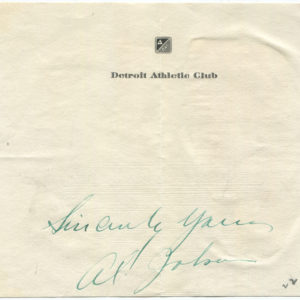 Detroit Athletic Club
Sincerely Yours
Al Jolson